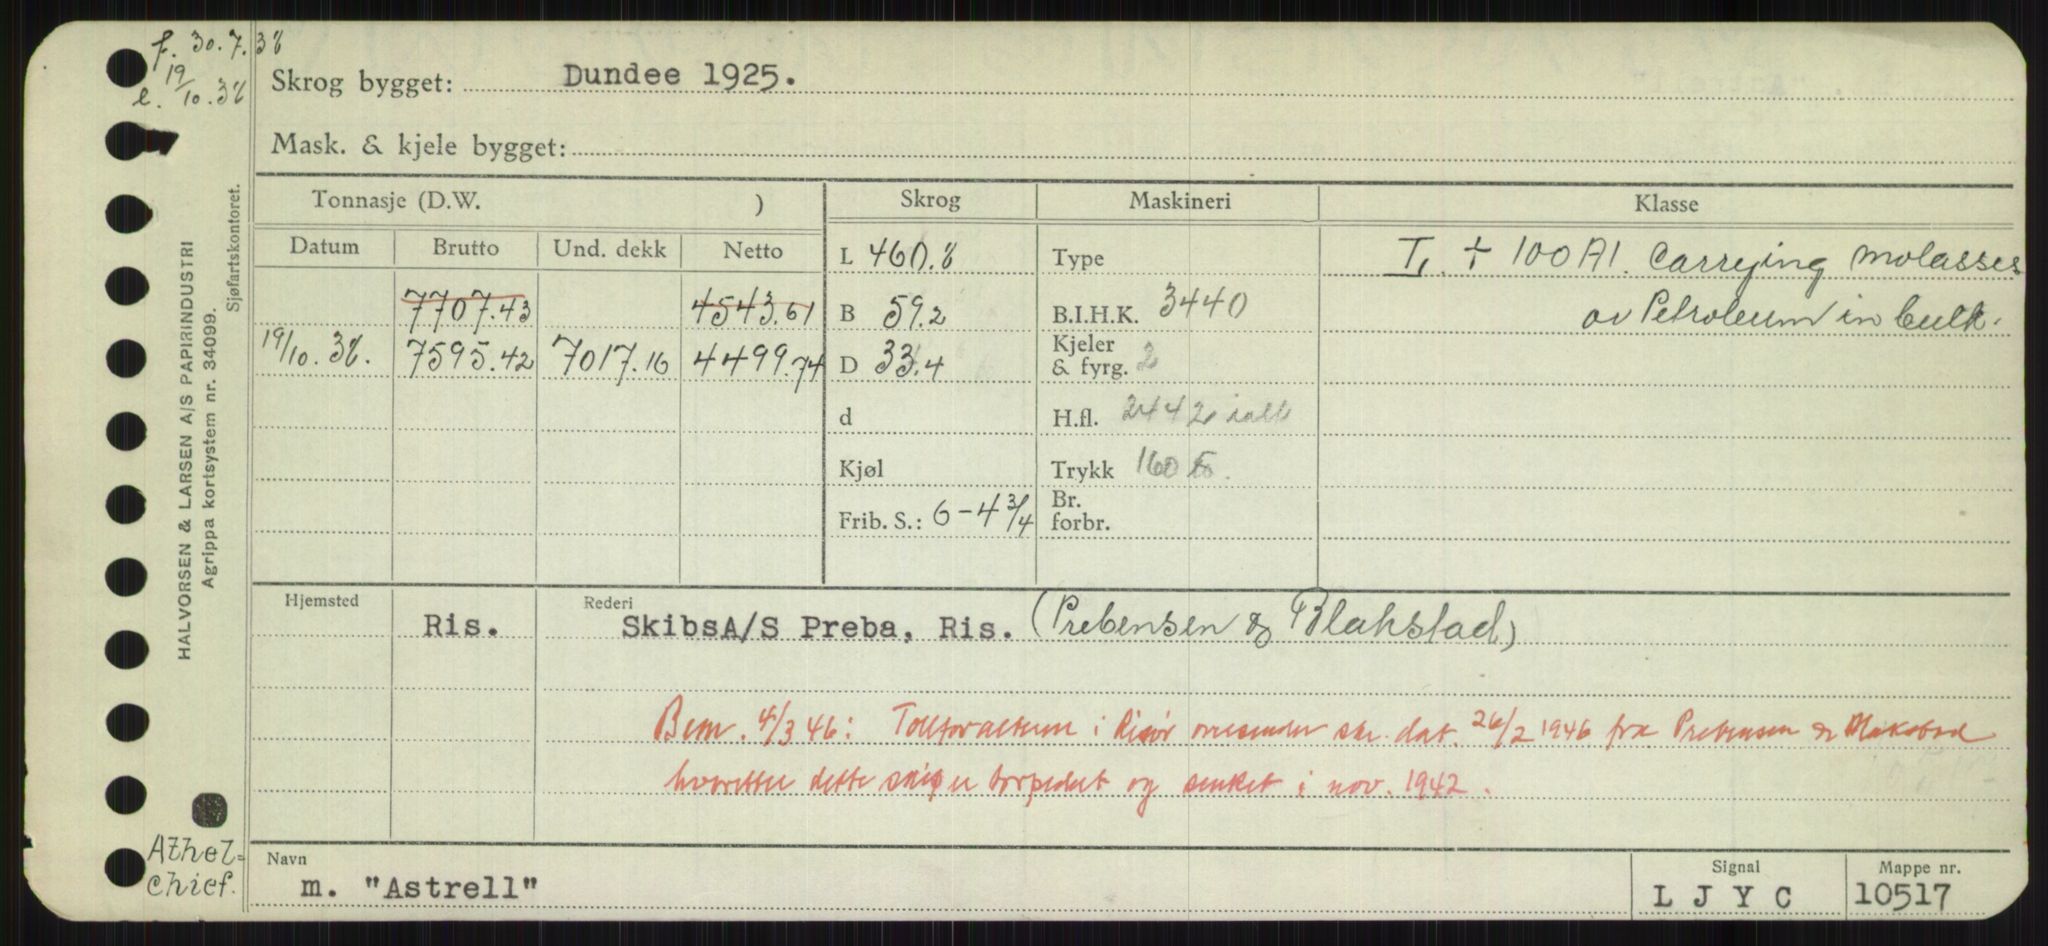 f. 30.7.38
19
e. /10.38
Skrog bygget: Dundee 1925.
Mask. & kjele bygget:
Tonnasje (D.W. )
Skrog
Maskineri
Klasse
Datum
Brutto
Und. dekk
Netto
L 460.8
Type
I, + 100 A1. Carrying molasses
7707.43
4543.61
B 59.2
B.I.H.K. 3440
or Petroleum in bulk.
19/10.38. 7595.42 7017.16 4499.74
D 33.4
Kjeler
& fyrg. 2
d
H.fl. 2442 ialt
Kjøl
Trykk 160
Frib. S.: 6-4 3/4
Br.
forbr.
Hjemsted
Ris.
Rederi
SkibsA/S Preba, Ris. (Prebensen & Blakstad)
Bem. 4/3 46: i Risør dat. 26/2 1946 fra Prebensen & Blakstad
hvoretter dette skip er torpedert og senket i nov. 1942.
Navn
m. "Astrell"
Signal
L J Y C
Mappe nr.
10517
HALVORSEN & LARSEN A/S PAPIRINDUSTRI
Agrippa kortsystem nr. 34099.
Sjøfartskontoret.
Athel=
chief.